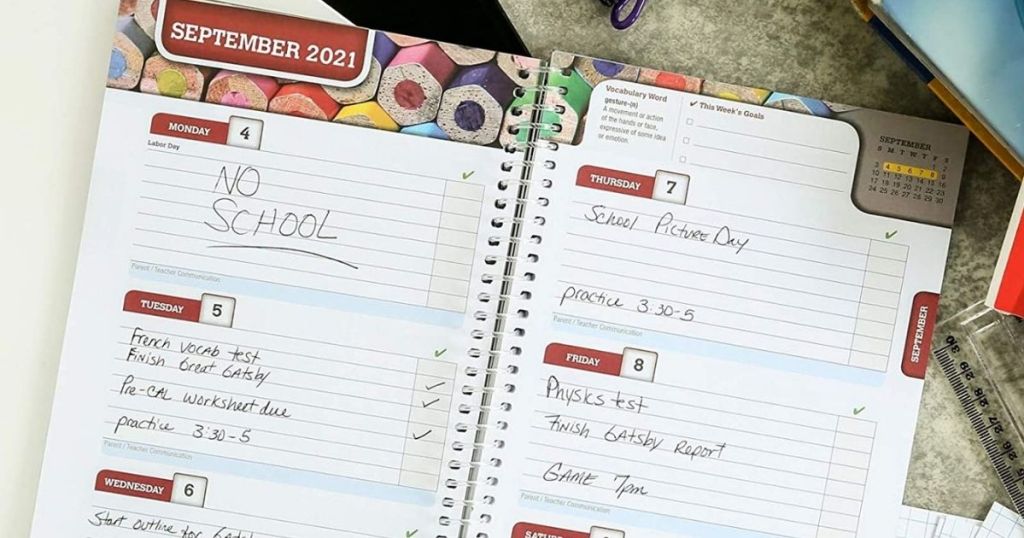 SEPTEMBER 2021
MONDAY 4
Labor Day
NO
SCHOOL
Parent / Teacher Communication
TUESDAY 5
French vocab test
Finish Great Gatsby
Pre-CAL worksheet due
practice 3:30-5
Parent / Teacher Communication
WEDNESDAY 6
Start outline for
Vocabulary Word
gesture-(n)
A movement or action
of the hands or face,
expressive of some idea
or emotion.
✔ This Week's Goals
SEPTEMBER
S M T W T F S
1 2
3 4 5 6 7 8 9
10 11 12 13 14 15 16
17 18 19 20 21 22 23
24 25 26 27 28 29 30
THURSDAY 7
School Picture Day
practice 3:30-5
Parent / Teacher Communication
FRIDAY 8
Physics test
Finish Gatsby Report
GAME 7pm
Parent / Teacher Communication
SEPTEMBER